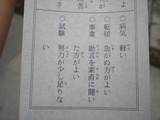 ○病気 軽い
○転居 急がぬ方がよい
○事業 助言を素直に聞い
た方がよい
○試験 努力が少し足りな
い